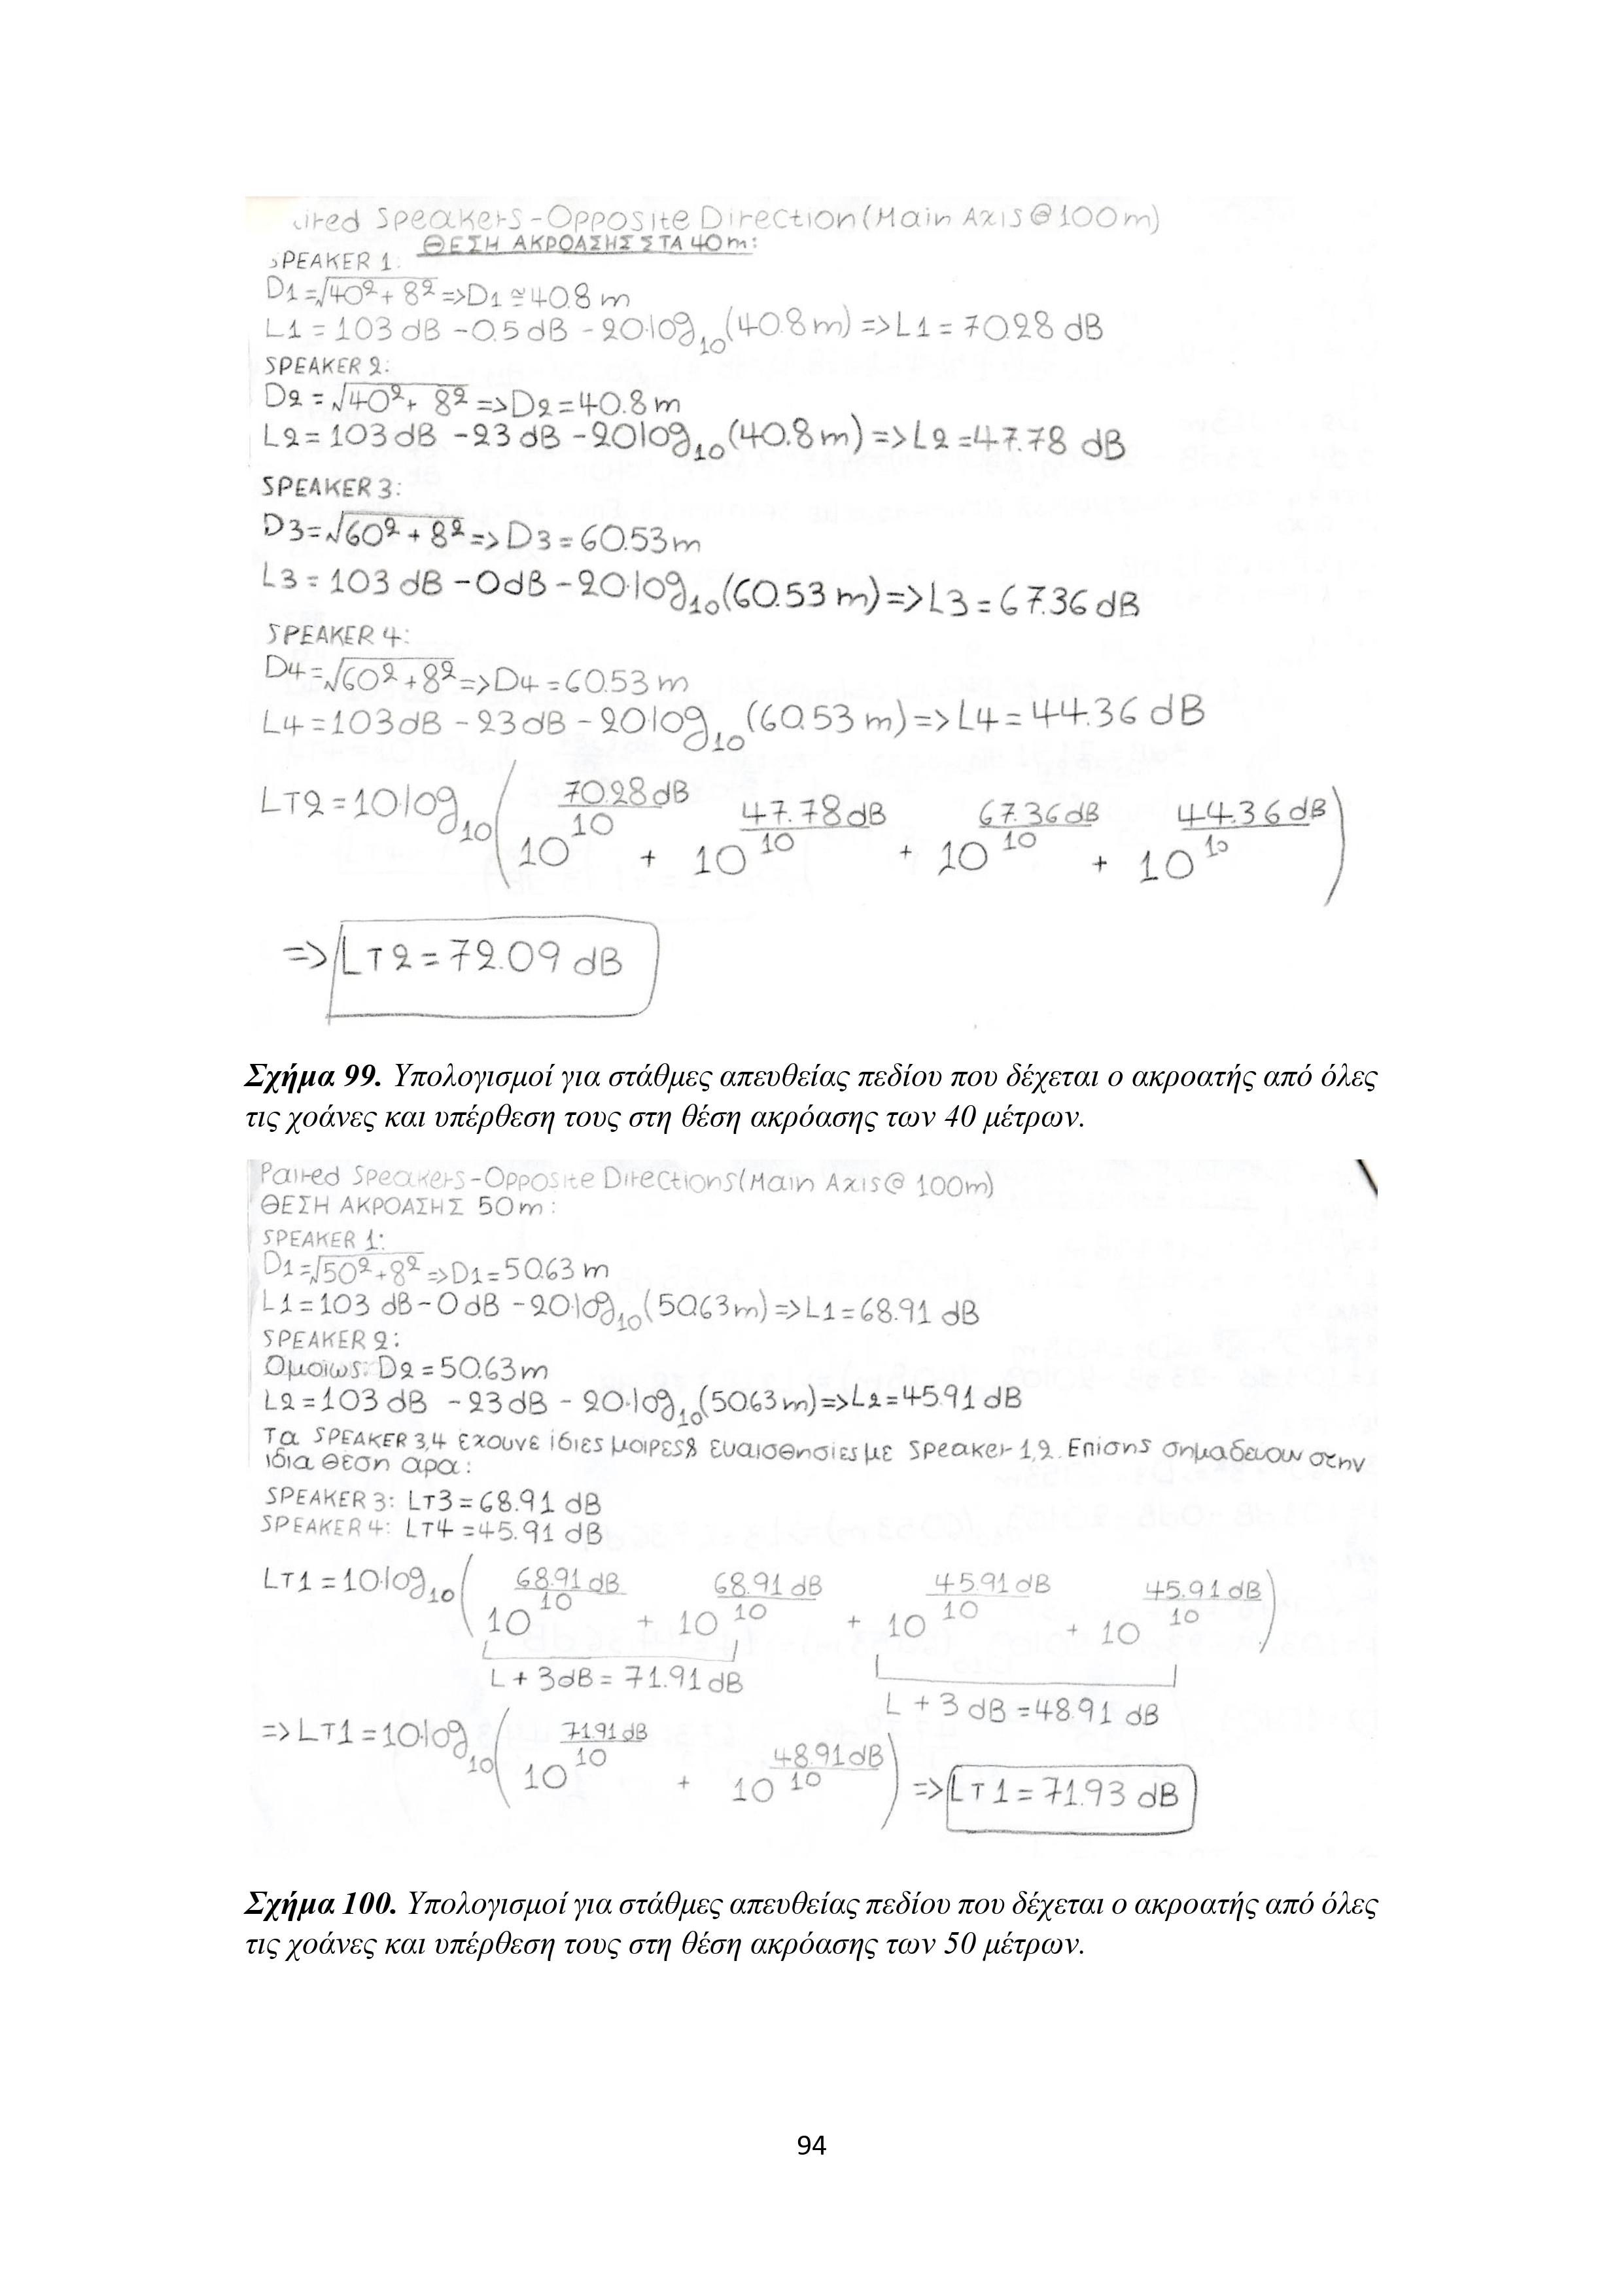 ired Speakers-Opposite Direction (Main Axis @ 100m)
ΘΕΣΗ ΑΚΡΟΑΣΗΣ ΣΤΑ 40m:
SPEAKER 1:
D1=√40²+8² =>D1≅40.8 m
L1=103 dB -0.5 dB - 20·log₁₀(40.8m) =>L1=70.28 dB
SPEAKER 2:
D2=√40²+ 8² =>D2=40.8m
L2=103 dB -23 dB -20log₁₀(40.8m)=>L2=47.78 dB
SPEAKER 3:
D3=√60²+8² =>D3=60.53m
L3=103 dB -0dB -20·log₁₀(60.53 m)=>L3=67.36 dB
SPEAKER 4:
D4=√60²+8² =>D4=60.53 m
L4=103dB -23dB -20log₁₀(60.53 m)=>L4=44.36 dB
LT2=10·log₁₀(10^(70.28dB/10) + 10^(47.78dB/10) + 10^(67.36dB/10) + 10^(44.36dB/10))
=> LT2=72.09 dB
Σχήμα 99. Υπολογισμοί για στάθμες απευθείας πεδίου που δέχεται ο ακροατής από όλες
τις χοάνες και υπέρθεση τους στη θέση ακρόασης των 40 μέτρων.
Paired Speakers-Opposite Directions(Main Axis@ 100m)
ΘΕΣΗ ΑΚΡΟΑΣΗΣ 50m:
SPEAKER 1:
D1=√50²+8² =>D1=50.63 m
L1=103 dB-0dB -20·log₁₀(50.63m)=>L1=68.91 dB
SPEAKER 2:
Ομοιως: D2=50.63m
L2=103 dB -23dB - 20·log₁₀(50.63m)=>L2=45.91 dB
Τα SPEAKER 3,4 εχουνε ίδιες μοιρες& ευαισθησίες με Speaker 1,2. Επισης σημαδευουν στην
ιδια θεση αρα:
SPEAKER 3: LT3=68.91 dB
SPEAKER 4: LT4=45.91 dB
LT1=10·log₁₀(10^(68.91dB/10) + 10^(68.91dB/10) + 10^(45.91dB/10) + 10^(45.91dB/10))
L+3dB=71.91dB
L+3 dB=48.91 dB
=>LT1=10·log₁₀(10^(71.91dB/10) + 10^(48.91dB/10)) => LT1=71.93 dB
Σχήμα 100. Υπολογισμοί για στάθμες απευθείας πεδίου που δέχεται ο ακροατής από όλες
τις χοάνες και υπέρθεση τους στη θέση ακρόασης των 50 μέτρων.
94